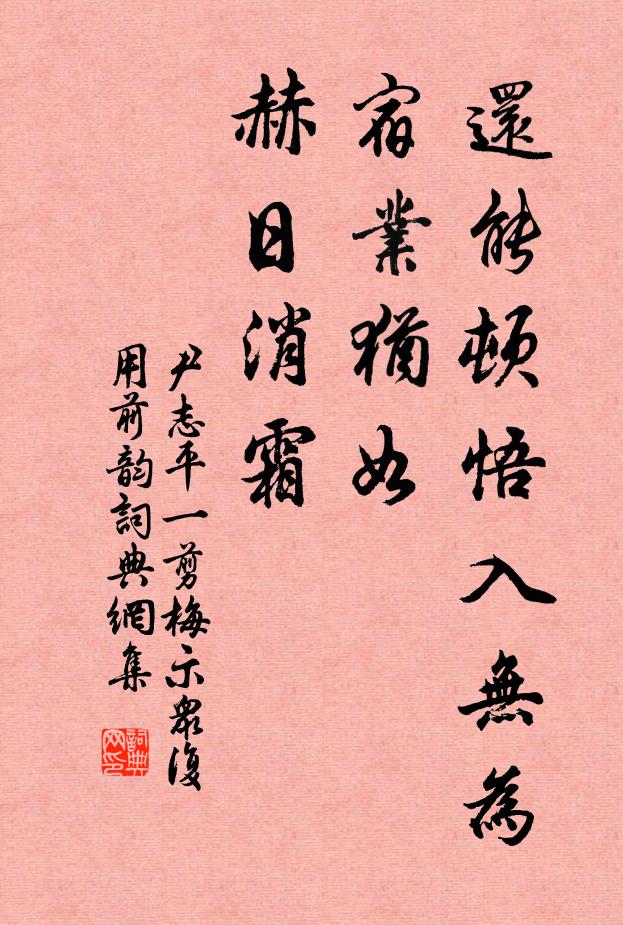 還能頓悟入無為
宿業猶如
赫日消霜
尹志平一剪梅示衆復
用前韵詞典網集
詞典
网印